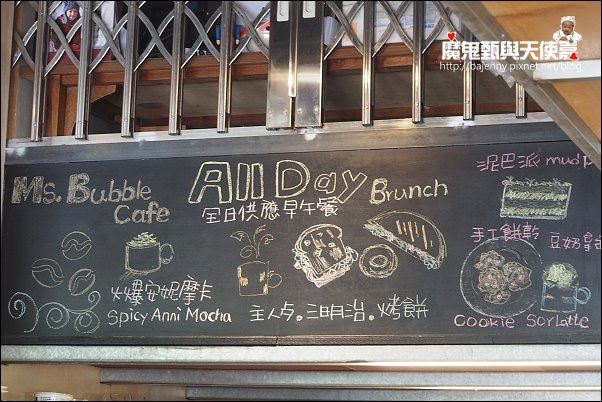 魔鬼甄與天使嘉
http://bajenny.pixnet.net/blog
Ms. Bubble
Cafe
All Day Brunch
全日供應早午餐
火爆安妮摩卡
Spicy Anni Mocha
主人点。三明治。烤餅
泥巴派 mud p
手工餅乾
Cookie
豆奶拿
Soy Latte